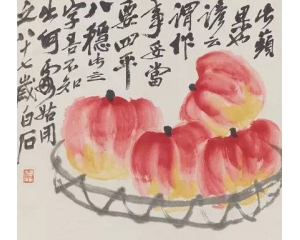 此蘋
果也
諺云
謂作
事妥當
要四平
八穩此三
字吾不知
出何處始用
之八十七歲白石